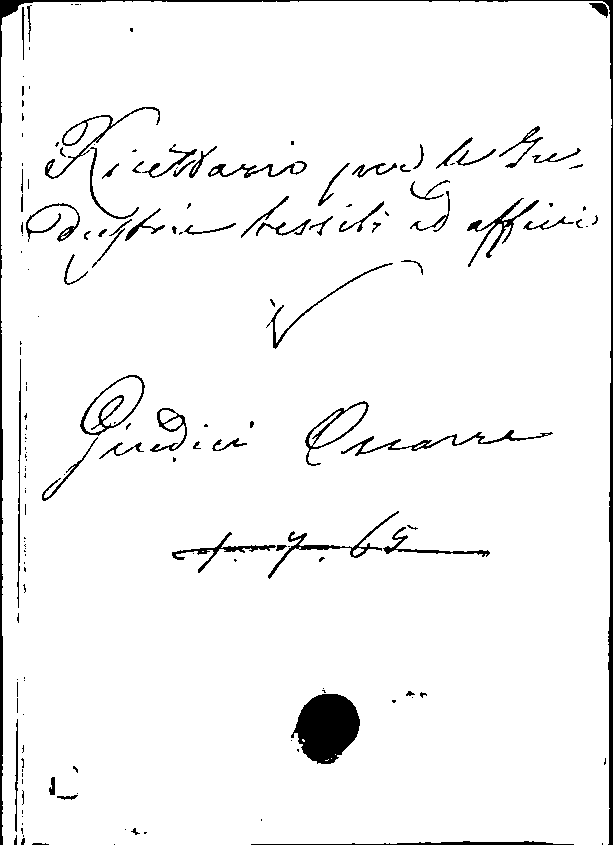 Ricettario per le In-
dustrie tessili ed affini
Giudici Oscarre
1. 7. 65